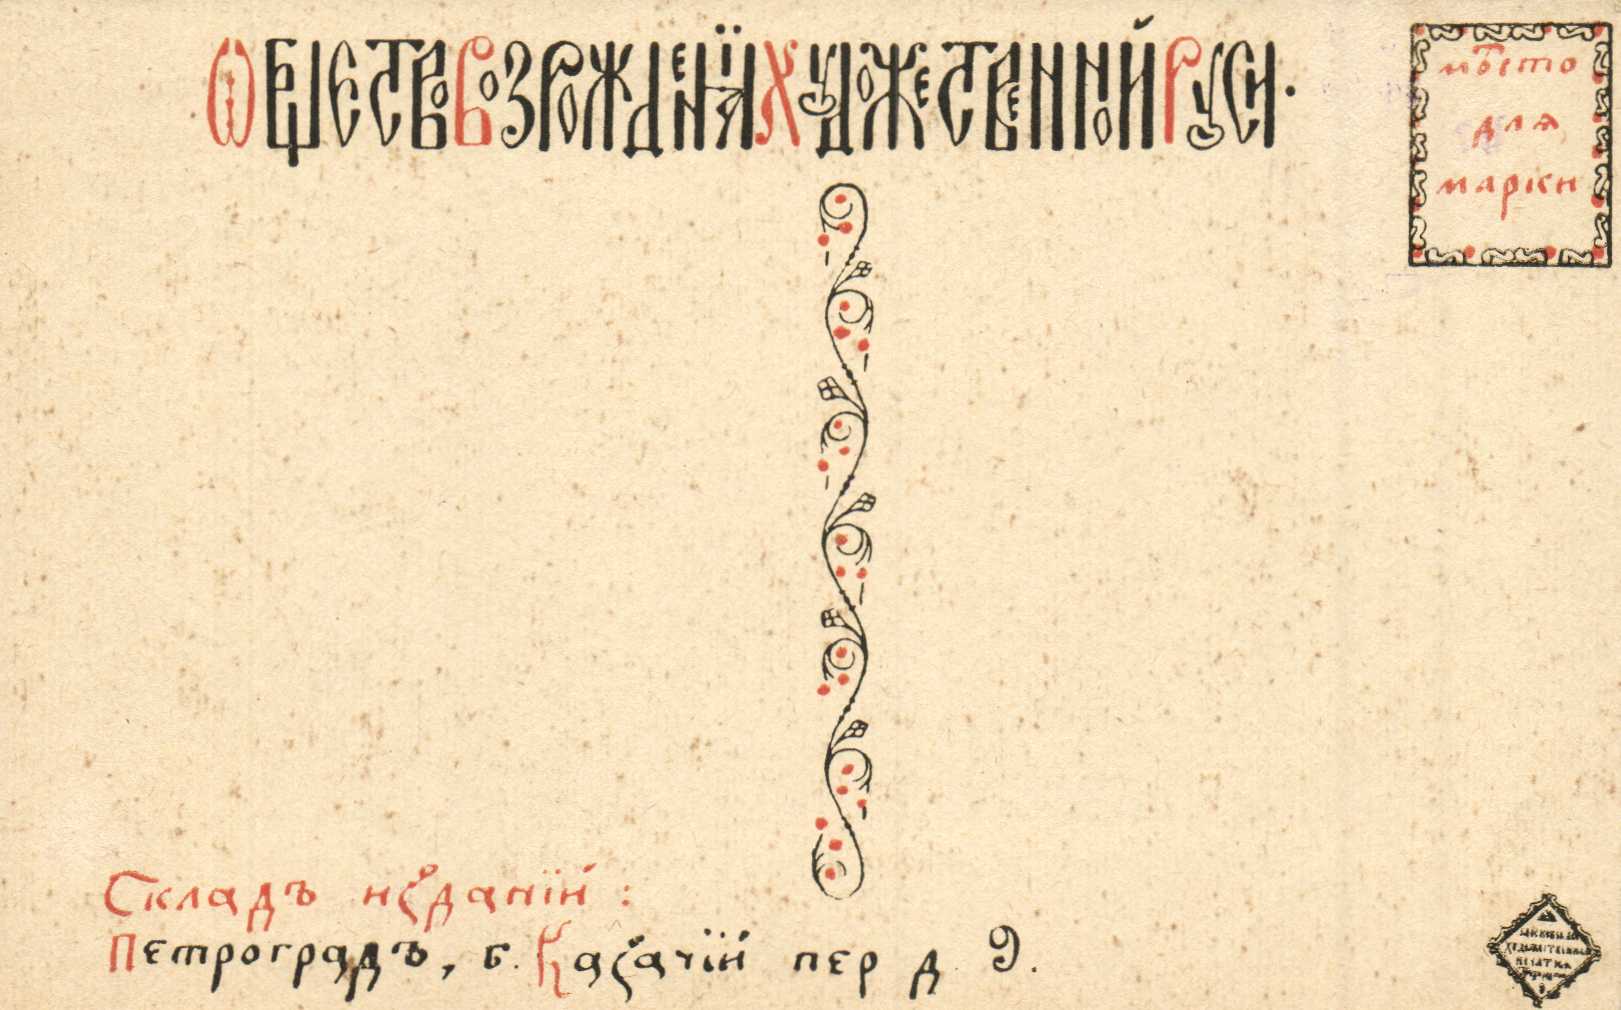 Ѡбществ Возрожденїя Художественной Руси.
мѣсто
для
марки
Складъ изданїй:
Петроградъ, б. Казачїй пер д. 9.